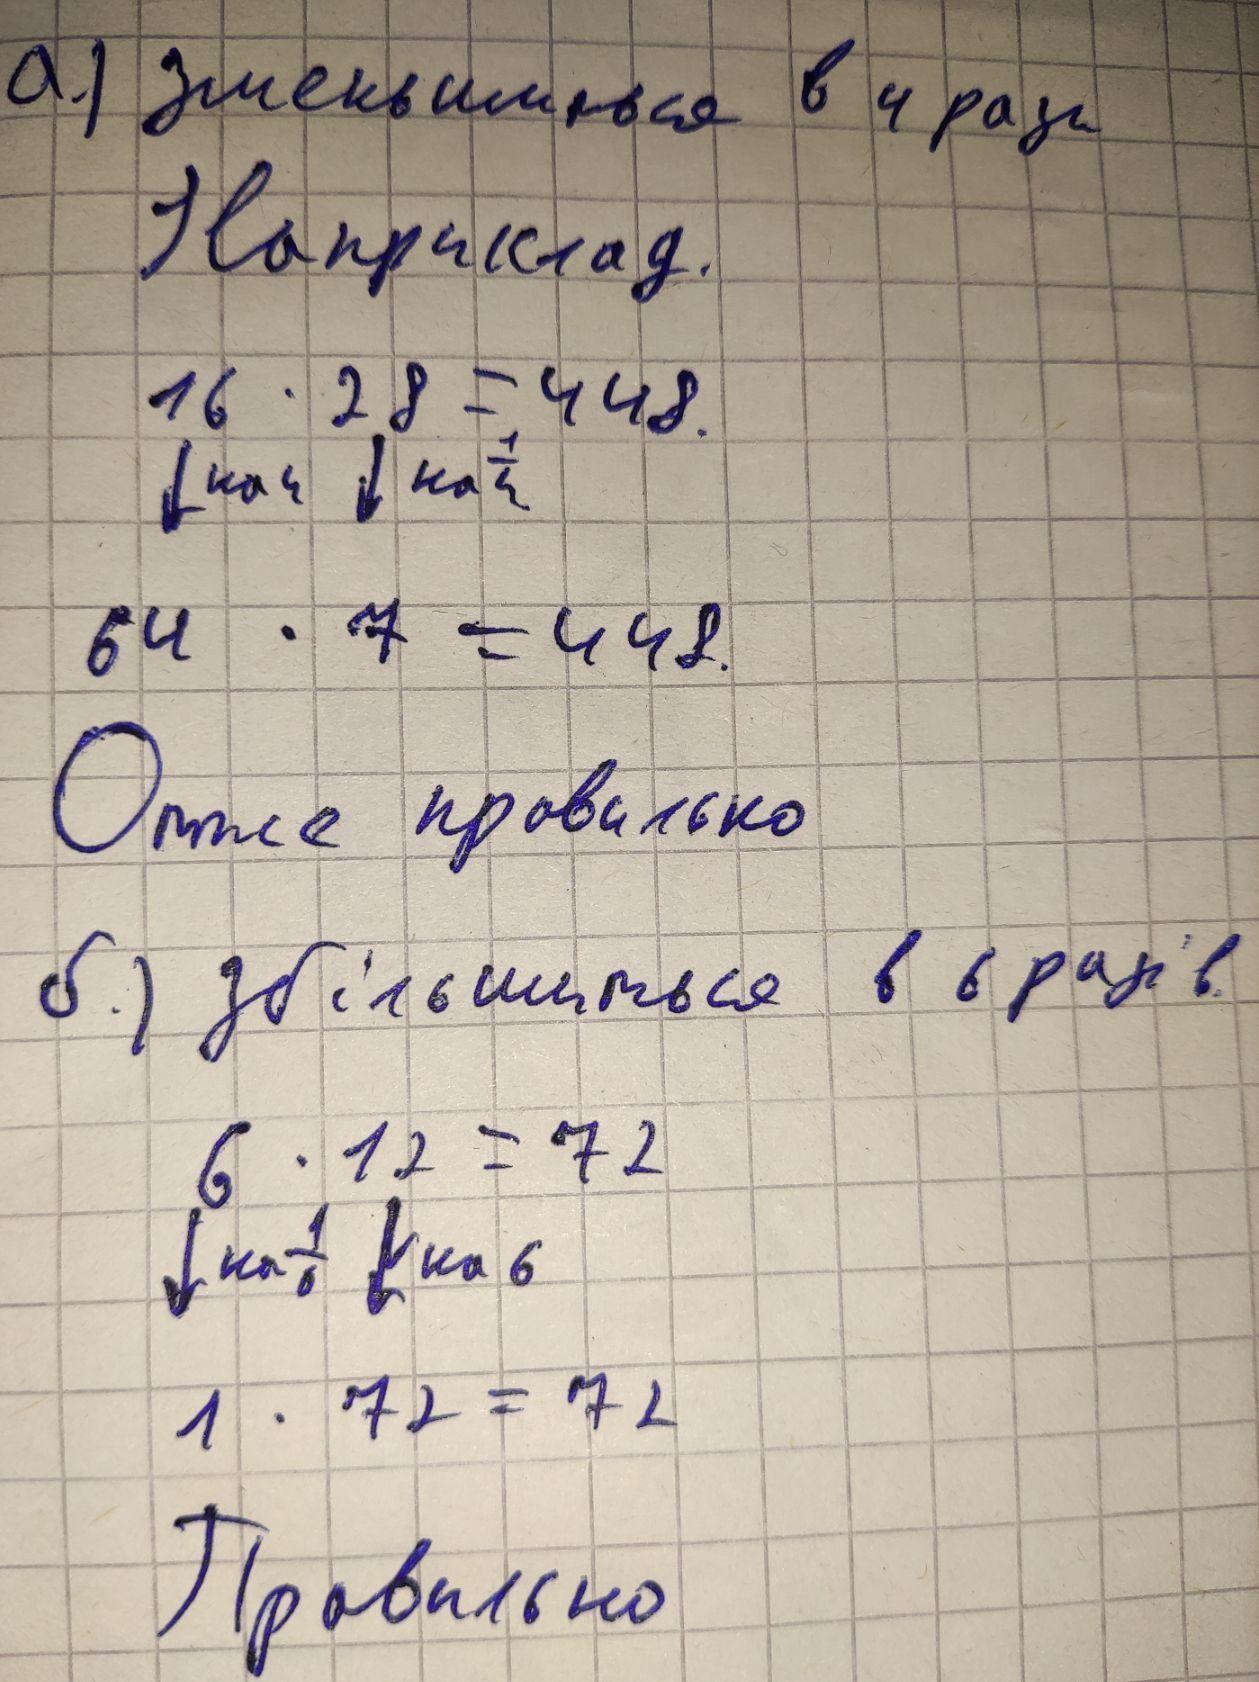 а.) зменьшиться в 4 рази
Наприклад.
16 · 28 = 448.
↓ на 4 ↓ на 1/4
64 · 7 = 448.
Отже правильно
б.) збільшиться в 6 разів.
6 · 12 = 72
↓ на 1/6 ↓ на 6
1 · 72 = 72
Правильно